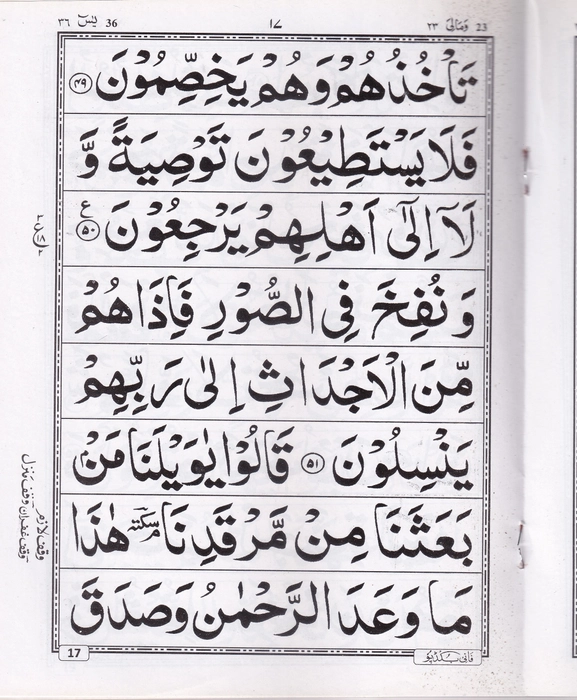 ٣٦ يٰسٓ 36
١٧
وَمَالِيَ ٢٣ 23
تَاْخُذُهُمْ وَهُمْ يَخِصِّمُوْنَ ﴿۴۹﴾
فَلَا يَسْتَطِيْعُوْنَ تَوْصِيَةً وَّ
لَاۤ اِلٰۤى اَهْلِهِمْ يَرْجِعُوْنَ ﴿۵۰﴾ ع
وَنُفِخَ فِى الصُّوْرِ فَاِذَا هُمْ
مِّنَ الْاَجْدَاثِ اِلٰى رَبِّهِمْ
يَنْسِلُوْنَ ﴿۵۱﴾ قَالُوْا يٰوَيْلَنَا مَنْۢ
بَعَثَنَا مِنْ مَّرْقَدِنَا ۘ سكتة هٰذَا
مَا وَعَدَ الرَّحْمٰنُ وَصَدَقَ
وقف لازم
وقف غفران وقف منزل
17